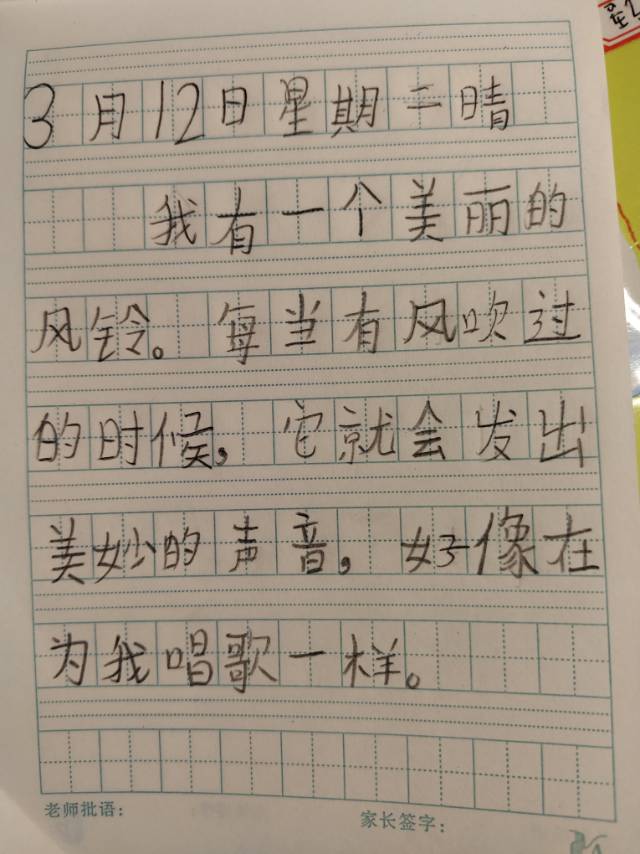 3月12日星期二晴
我有一个美丽的
风铃。每当有风吹过
的时候，它就会发出
美妙的声音，好像在
为我唱歌一样。
老师批语：
家长签字：